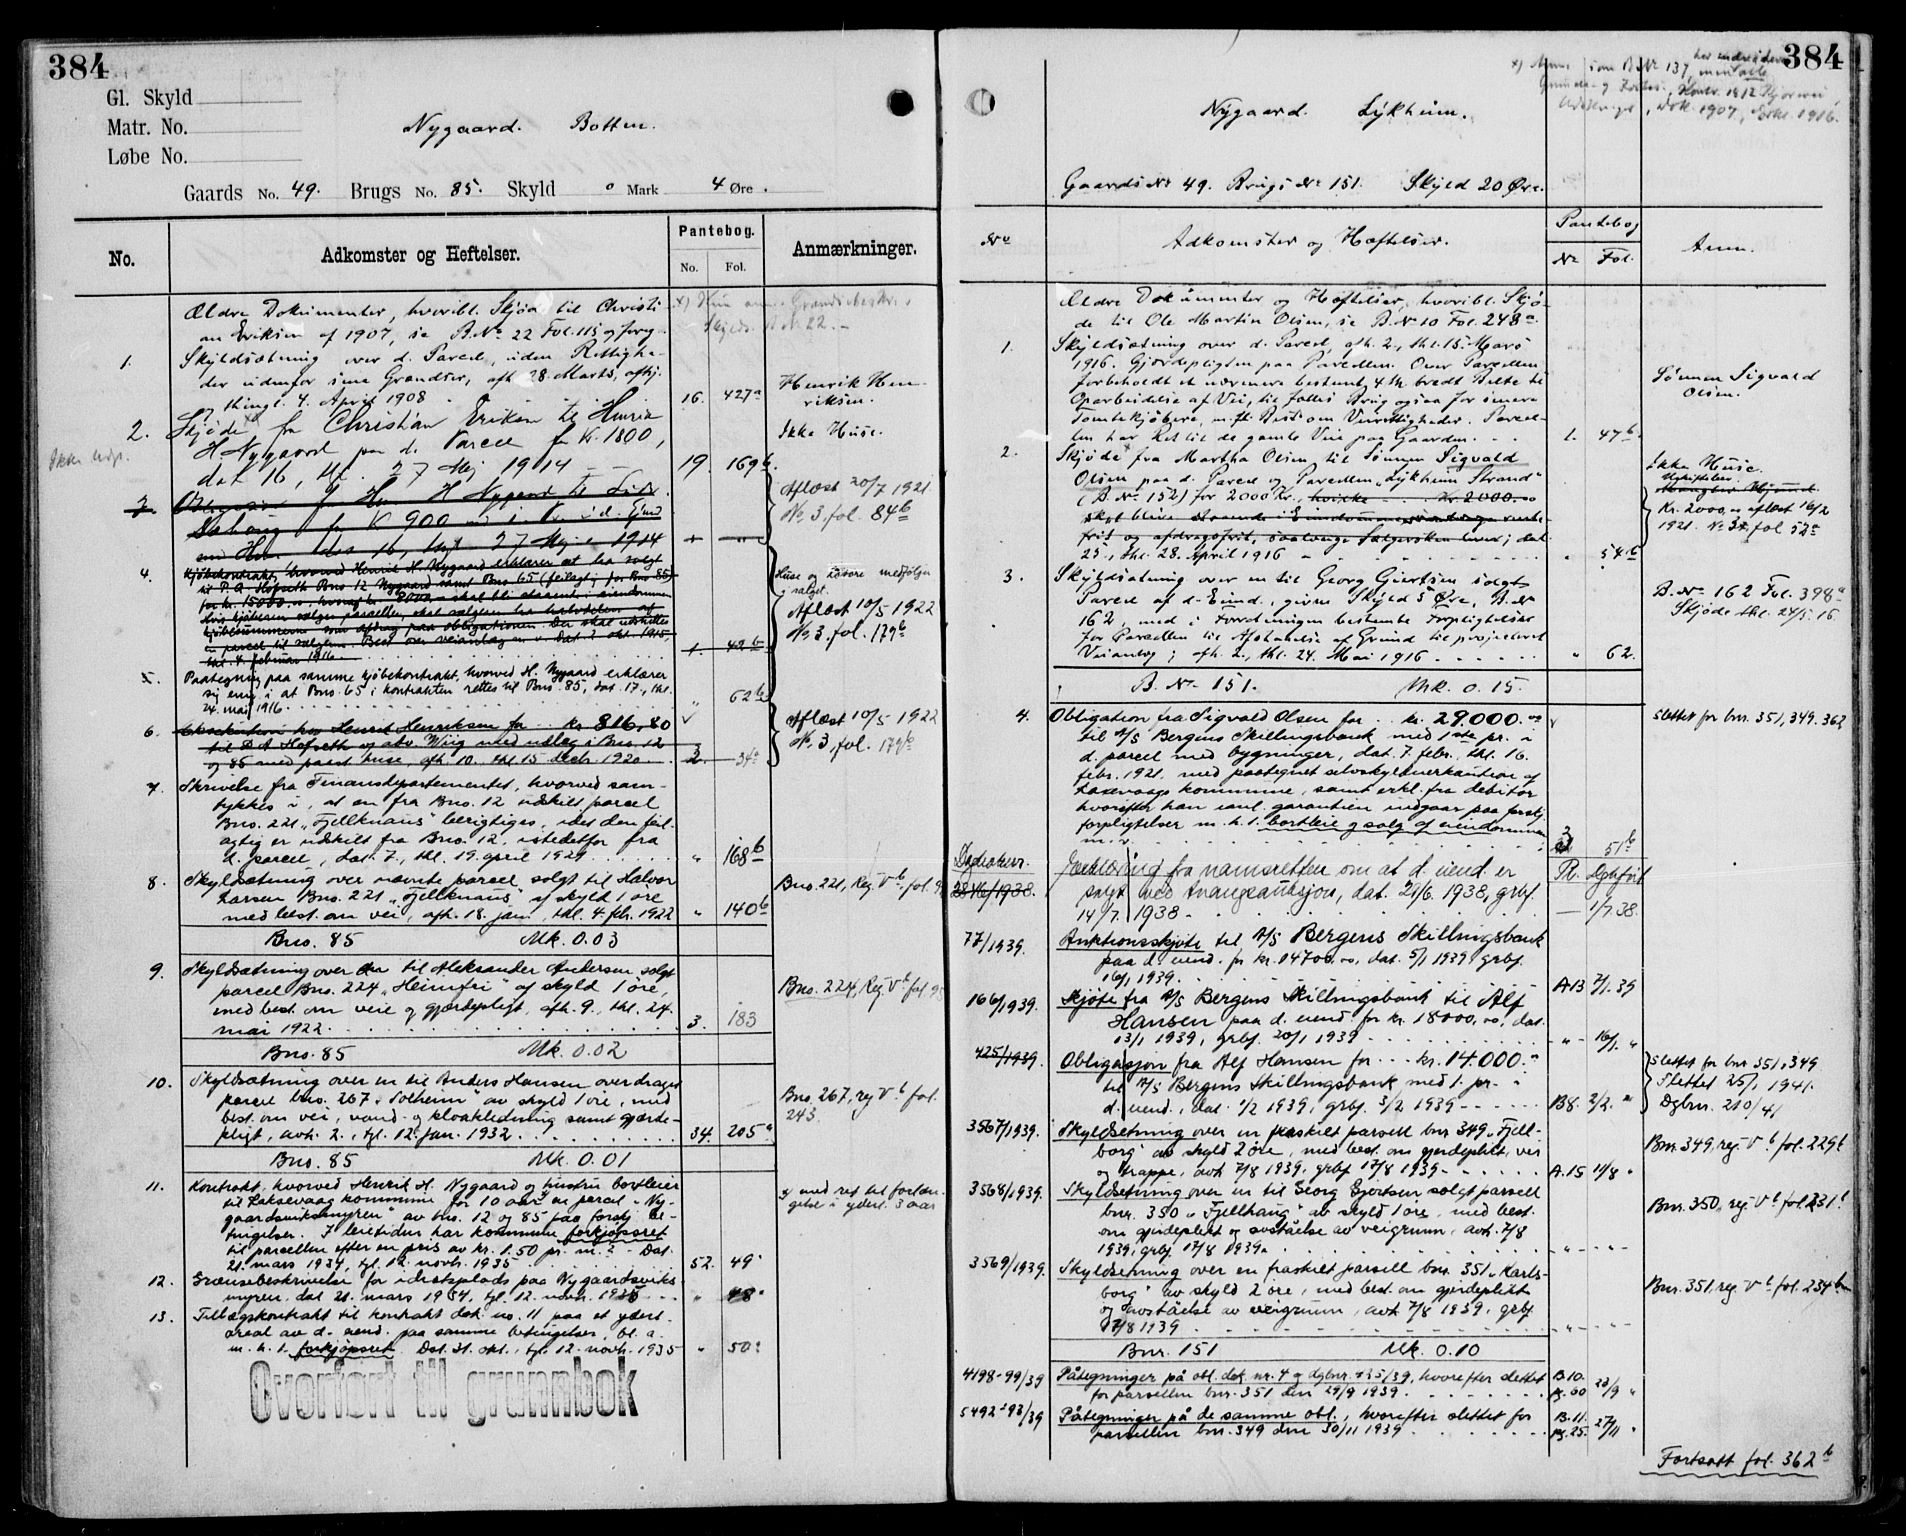 384
Gl. Skyld
Matr. No.
Løbe No.
Nygaard. Botten.
Gaards No. 49. Brugs No. 85. Skyld 0 Mark 4 Øre.
No. Adkomster og Heftelser. Pantebog. No. Fol. Anmærkninger.
Ældre Dokumenter, hvoribl. Skjøde til Christi-
an Eriksen af 1907, se B. No 22 Fol. 115 og foreg.
1. Skyldsætning over d. Parcel, uden Rettighe-
der udenfor sine Grændser, afh. 28. Marts, afhj.
thingl. 4. April 1908 16. 427a
Henrik Hen-
riksen.
2. Skjøde fra Christian Eriksen til Henrik
H Nygaard paa d. Parcel for Kr. 1800,
dat 16, thl. 27 Mai 1914 19. 169b
Ikke Huse.
Ikke Udp.
3. Obligation fra Henrik H Nygaard til
for Kr 900 med i. Pr. i d. Eiend
med Huse dat 16, thgl 27 Mai 1914
Aflæst 20/7 1921
No. 3, fol. 84b
4. Kjøbekontrakt, hvorved Henrik H. Nygaard erklærer at ha solgt
til P. A. Hofseth Bno 12 Nygaard samt Bno 65 (feilagtig for Bno 85)
for kr. 15000.00 hvoraf kr. 8000.00 skal bli staaende i eiendommen
Hvis kjøberen sælger parceller, skal sælgeren ha halvdelen af
kjøbesummerne som afdrag paa obligationen. Der skal udskilles
en parcel til sælgeren. Best. om veianlæg m. v. Dat. 2. okt. 1915,
thl. 4. februar 1916 1. 42b
Huse og Løsøre medfølger
i salget.
Aflæst 10/5 1922
No. 3, fol. 179b
5. Paategning paa samme kjøbekontrakt, hvorved H. Nygaard erklærer
sig enig i at Bno. 65 i kontrakten rettes til Bno. 85, dat. 17., thl.
24. mai 1916 " 62b
6. Eksekution hos Henrik Henriksen for kr. 816.80
til P A Hofseth og adv. Wiig med udlæg i Bno. 12
og 85 med paast. huse, afh. 10. thl 15 decb. 1920 2. 34a
Aflæst 10/5 1922
No. 3, fol. 179b
7. Skrivelse fra Finansdepartementet, hvorved sam-
tykkes i, at en fra Bno. 12 udskilt parcel
Bno. 221 "Fjellknaus" berigtiges, idet den feil-
agtig er udskilt fra Bno. 12, istedetfor fra
d. parcel, dat. 7., thl. 19. april 1921 " 168b
8. Skyldsætning over nævnte parcel solgt til Halvor
Larsen Bno. 221 "Fjellknaus" af skyld 1 øre
med best. om vei, afh. 18. jan., thl. 4. feb. 1922 " 140b
Bno. 221, Reg. Vb. fol. 9
Bno. 85 Mk. 0.03
9. Skyldsætning over en til Aleksander Andersen solgt
parcel Bno. 224 "Heimfri" af skyld 1 øre,
med best. om veie og gjærdepligt, afh. 9., thl. 24.
mai 1922 3. 183
Bno. 224, Reg. Vb fol 95
Bno. 85 Mk. 0.02
10. Skyldsætning over en til Anders Hansen overdraget
parcel bno. 267 "Solheim" av skyld 1 øre, med
best. om vei, vand- og kloakledning samt gjærde-
pligt, avh. 2., tgl. 12. jan. 1932 34. 205a
Bno. 267, reg Vb fol.
243.
Bno. 85 Mk. 0.01
11. Kontrakt, hvorved Henrik H. Nygaard og hustru bortleier
til Laksevaag kommune for 10 aar en parcel "Ny-
gaardsviksmyren" av bno. 12 og 85 paa forskj. be-
tingelser. I leietiden har kommunen forkjøpsret
til parcellen efter en pris av kr. 1.50 pr. m.2 - Dat.
21. mars 1934, tgl. 12. novb. 1935 52. 49a
x) med ret til forlæn-
gelse i yderl. 3 aar
12. Grænsebeskrivelse for idrætsplads paa Nygaardsviks-
myren, dat 21. mars 1934, tgl. 12. novb. 1935 " 48a
13. Tillægskontrakt til kontrakt dok. no. 11 paa et yderl.
areal av d. eiend. paa samme betingelser, bl. a.
m. h. t. forkjøpsret. Dat. 31. okt., tgl. 12. novb. 1935 " 50a
Overført til grunnbok
384
Nygaard. Lykheim.
Gaards No 49. Brugs No 151. Skyld 20 Øre.
No Adkomster og Hæftelser. Pantebog No Fol. Anm.
Ældre Dokumenter og Hæftelser, hvoribl. Skjø-
de til Ole Martin Olsen, se B. No 10 Fol. 248a.
1. Skyldsætning over d. Parcel, afh. 2., thl. 15. Mars
1916. Gjærdepligten paa Parcellen. Over Parcellen
forbeholdt et nærmere bestemt, 4 m. bredt Belte til
Oparbeidelse af Vei, til fælles Brug ogsaa for senere
Tomtekjøbere, m. fl. Best. om Veirettigheder. Parcel-
len har Ret til de gamle Veie paa Gaarden. 1. 47b.
Sønnen Sigvald
Olsen.
2. Skjøde fra Martha Olsen til Sønnen Sigvald
Olsen paa d. Parcel og Parcellen "Lykheim Strand"
(B. No 152) for 2000 Kr., hvilke Kr. 2000.00
skal blive staaende i Eiendommen rente-
frit og afdragsfrit, saalænge Sælgersken lever; dat.
25., thl. 28. April 1916 " 54b
Ikke Huse.
Kr. 2000,00 aflæst 16/2
1921. No 3, fol 52a
3. Skyldsætning over en til Georg Giertsen solgt
Parcel af d. Eiend., givne Skyld 5 Øre, B. No
162, med i Forretningen bestemte Forpligtelser
for Parcellen til Afstaaelse af Grund til projekteret
Veianlæg; afh. 2., thl. 24. Mai 1916 " 62.
B. No 162 Fol. 398a
Skjøde thl. 24/5. 16.
B. No. 151. Mk. 0.15.
4. Obligation fra Sigvald Olsen for kr. 29.000.00
til A/S Bergens Skillingsbank med 1ste pr. i
d. parcel med bygninger, dat. 7. febr., thl. 16.
febr. 1921, med paategnet selvskyldnerkaution af
Laxevaags kommune, samt erkl. fra debitor
hvorefter han ianl. garantien indgaar paa forskj.
forpligtelser m. h. t. bortleie og salg af eiendommen
m. v. 3 51b
Slettet for bnr. 351, 349. 362
Erklæring fra namsretten om at d. eiend. er
solgt ved tvangsauksjon, dat. 21/6. 1938, grbf.
14/7. 1938
1/7.38.
77/1939. Auktionsskjøte til A/S Bergens Skillingsbank
paa d. eiend. for kr. 14700.00, dat. 5/1 1939, grbf.
10/1 1939. A13 7/1.39
166/1939. Skjøte fra A/S Bergens Skillingsbank til Alf
Hansen paa d. eiend. for kr. 18000,00, dat.
13/1 1939, grbf. 20/1 1939 " 16/1. "
425/1939. Obligasjon fra Alf Hansen for kr. 14.000.00
til A/S Bergens Skillingsbank med 1. pr. i
d. eiend., dat. 1/2 1939, grbf. 3/2 1939 B8. 2/2. "
Slettet for bnr 351, 349
Slettet 25/1 1941.
Dgbnr. 210/41
3567/1939. Skyldsetning over en fraskilt parsell bnr 349 "Fjell-
borg" av skyld 2 øre, med best. om gjerdeplikt, vei
og trappe, avh. 7/8 1939, grbf 17/8 1939 A.15 11/8 "
Bnr. 349, reg. Vb fol. 229b
3568/1939. Skyldsetning over en til Georg Gjertsen solgt parsell
bnr. 350 "Fjellhaug" av skyld 1 øre, med best.
om gjerdeplikt og avståelse av veigrunn, avh. 7/8
1939, grbf. 17/8 1939. " - " - "
Bnr. 350, reg. Vb fol. 231b
3569/1939. Skyldsetning over en fraskilt parsell bnr. 351 "Karls-
borg" av skyld 2 øre, med best. om gjerdeplikt
og avståelse av veigrunn, avh 7/8 1939, grbf.
17/8 1939 " - " - "
Bnr. 351, reg. Vb fol. 234b
Bnr. 151 Mk. 0.10
4198-99/39 Påtegninger på obl. dok. nr. 4 og dgbnr. 425/39, hvorefter slettet
for parsellen bnr. 351 den 29/9 1939. B.10. pg. 60 28/9 "
5492-93/39 Påtegninger på de samme obl., hvorefter slettet for
parsellen bnr. 349 den 30/11 1939 B.11. pg. 25. 27/11 "
Fortsatt fol. 362b